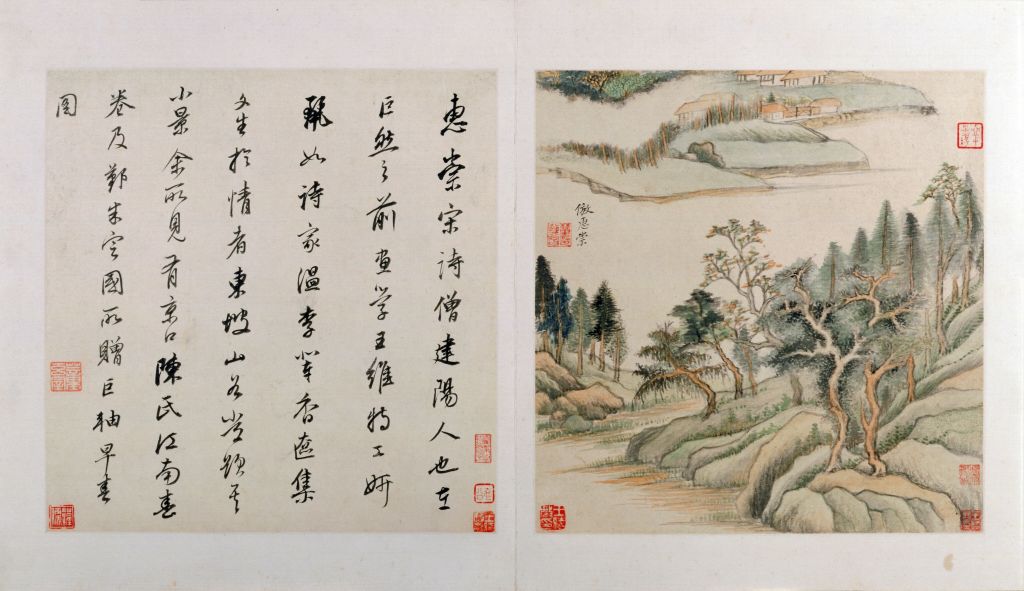 倣惠崇
惠崇宋詩僧建陽人也在
巨然之前画學王維特工妍
麗如詩家溫李輩香奩集
文生於情者東坡山谷嘗題其
小景余所見有京口陳氏江南春
卷及朱定國所贈巨軸早春
圖